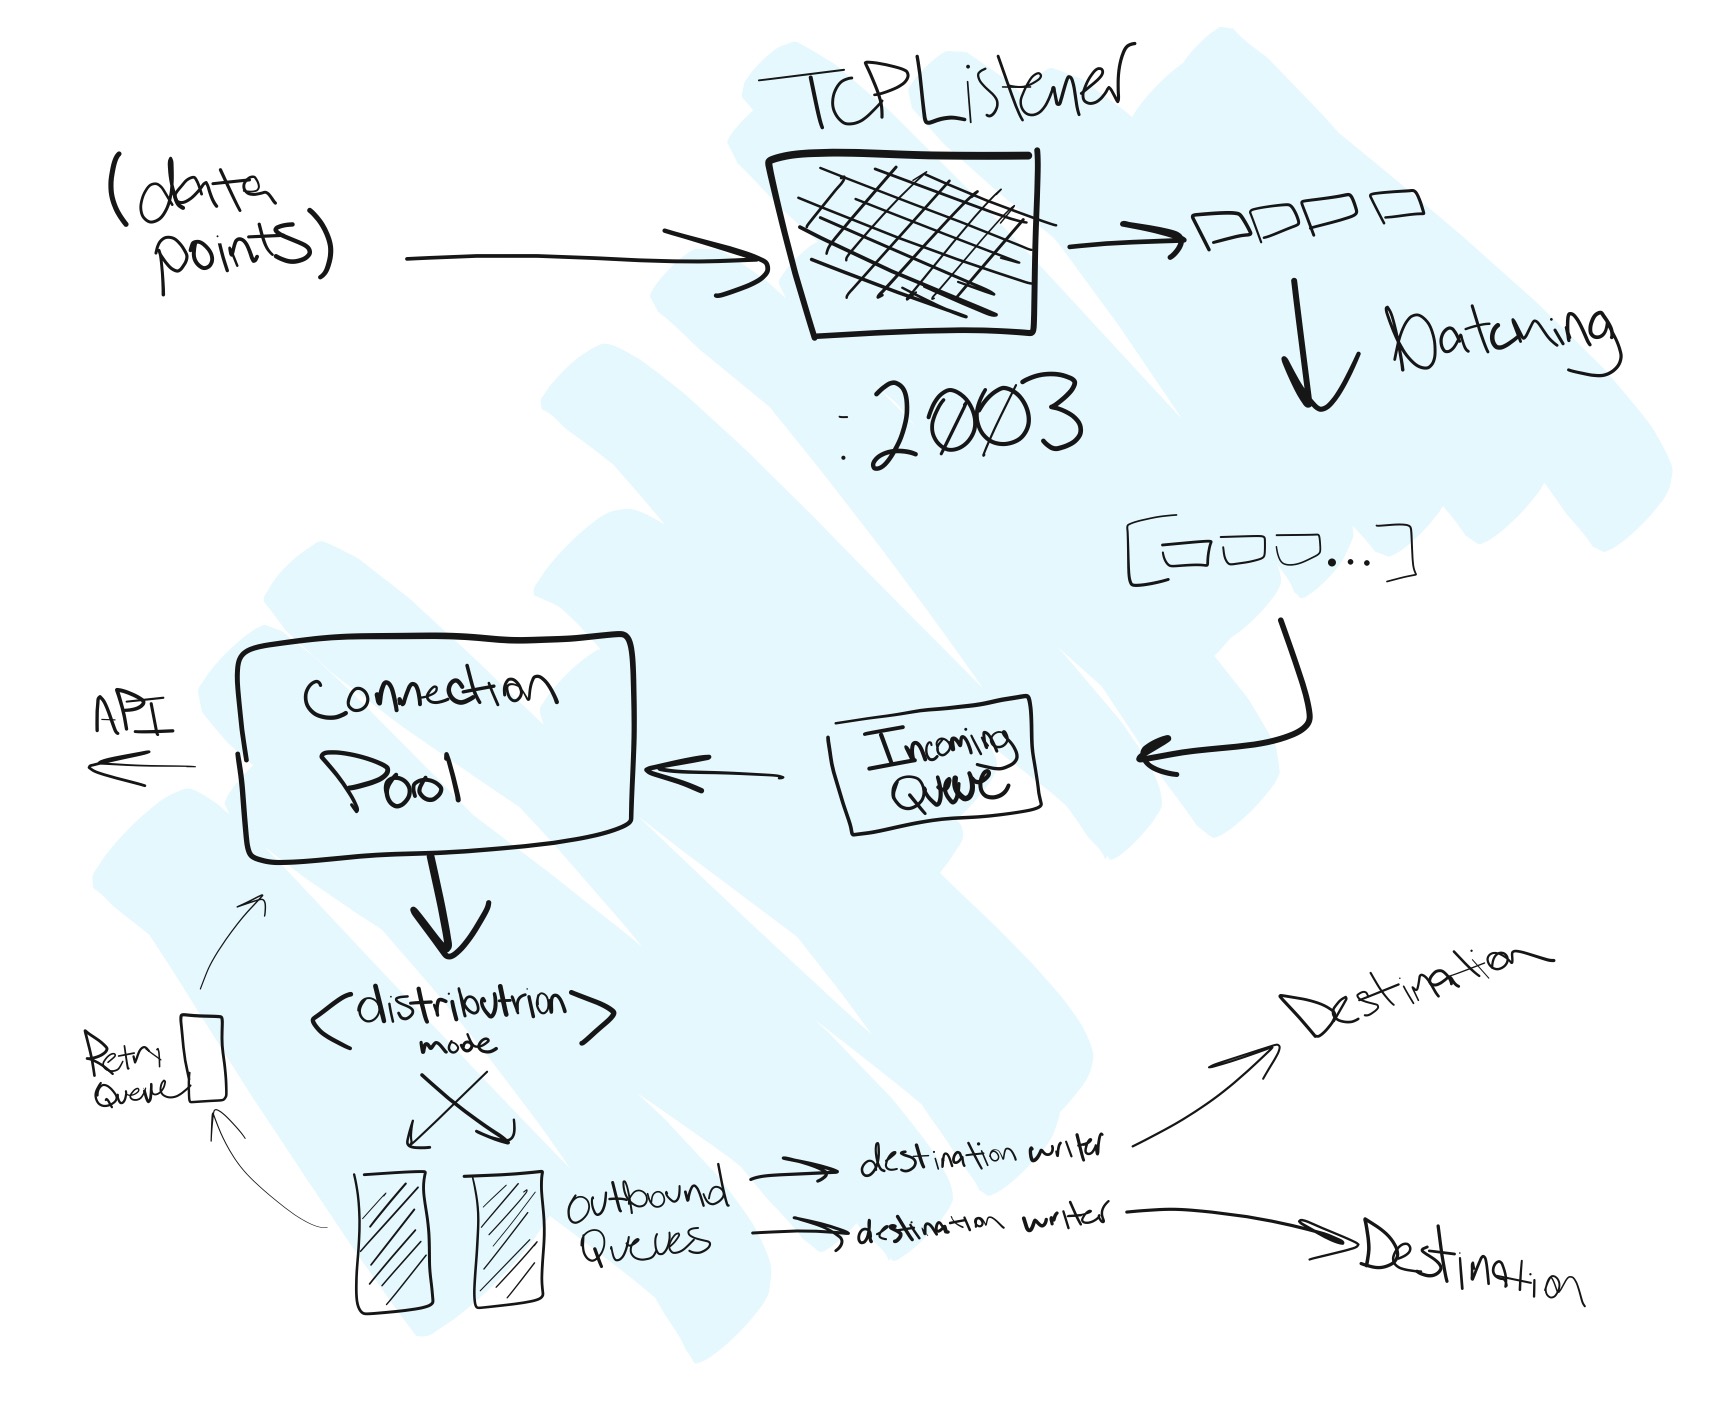 TCPListener
(data
points)
:2003
batching
[ ... ]
Incoming
Queue
Connection
Pool
API
<distributrion>
mode
Retry
Queue
outbound
Queues
destination writer
destination writer
Destination
Destination